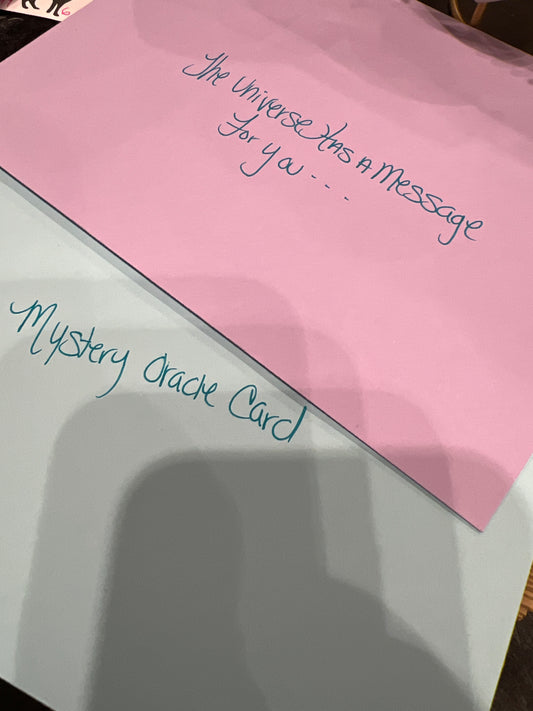 The Universe Has A Message
For You...
Mystery Oracle Card